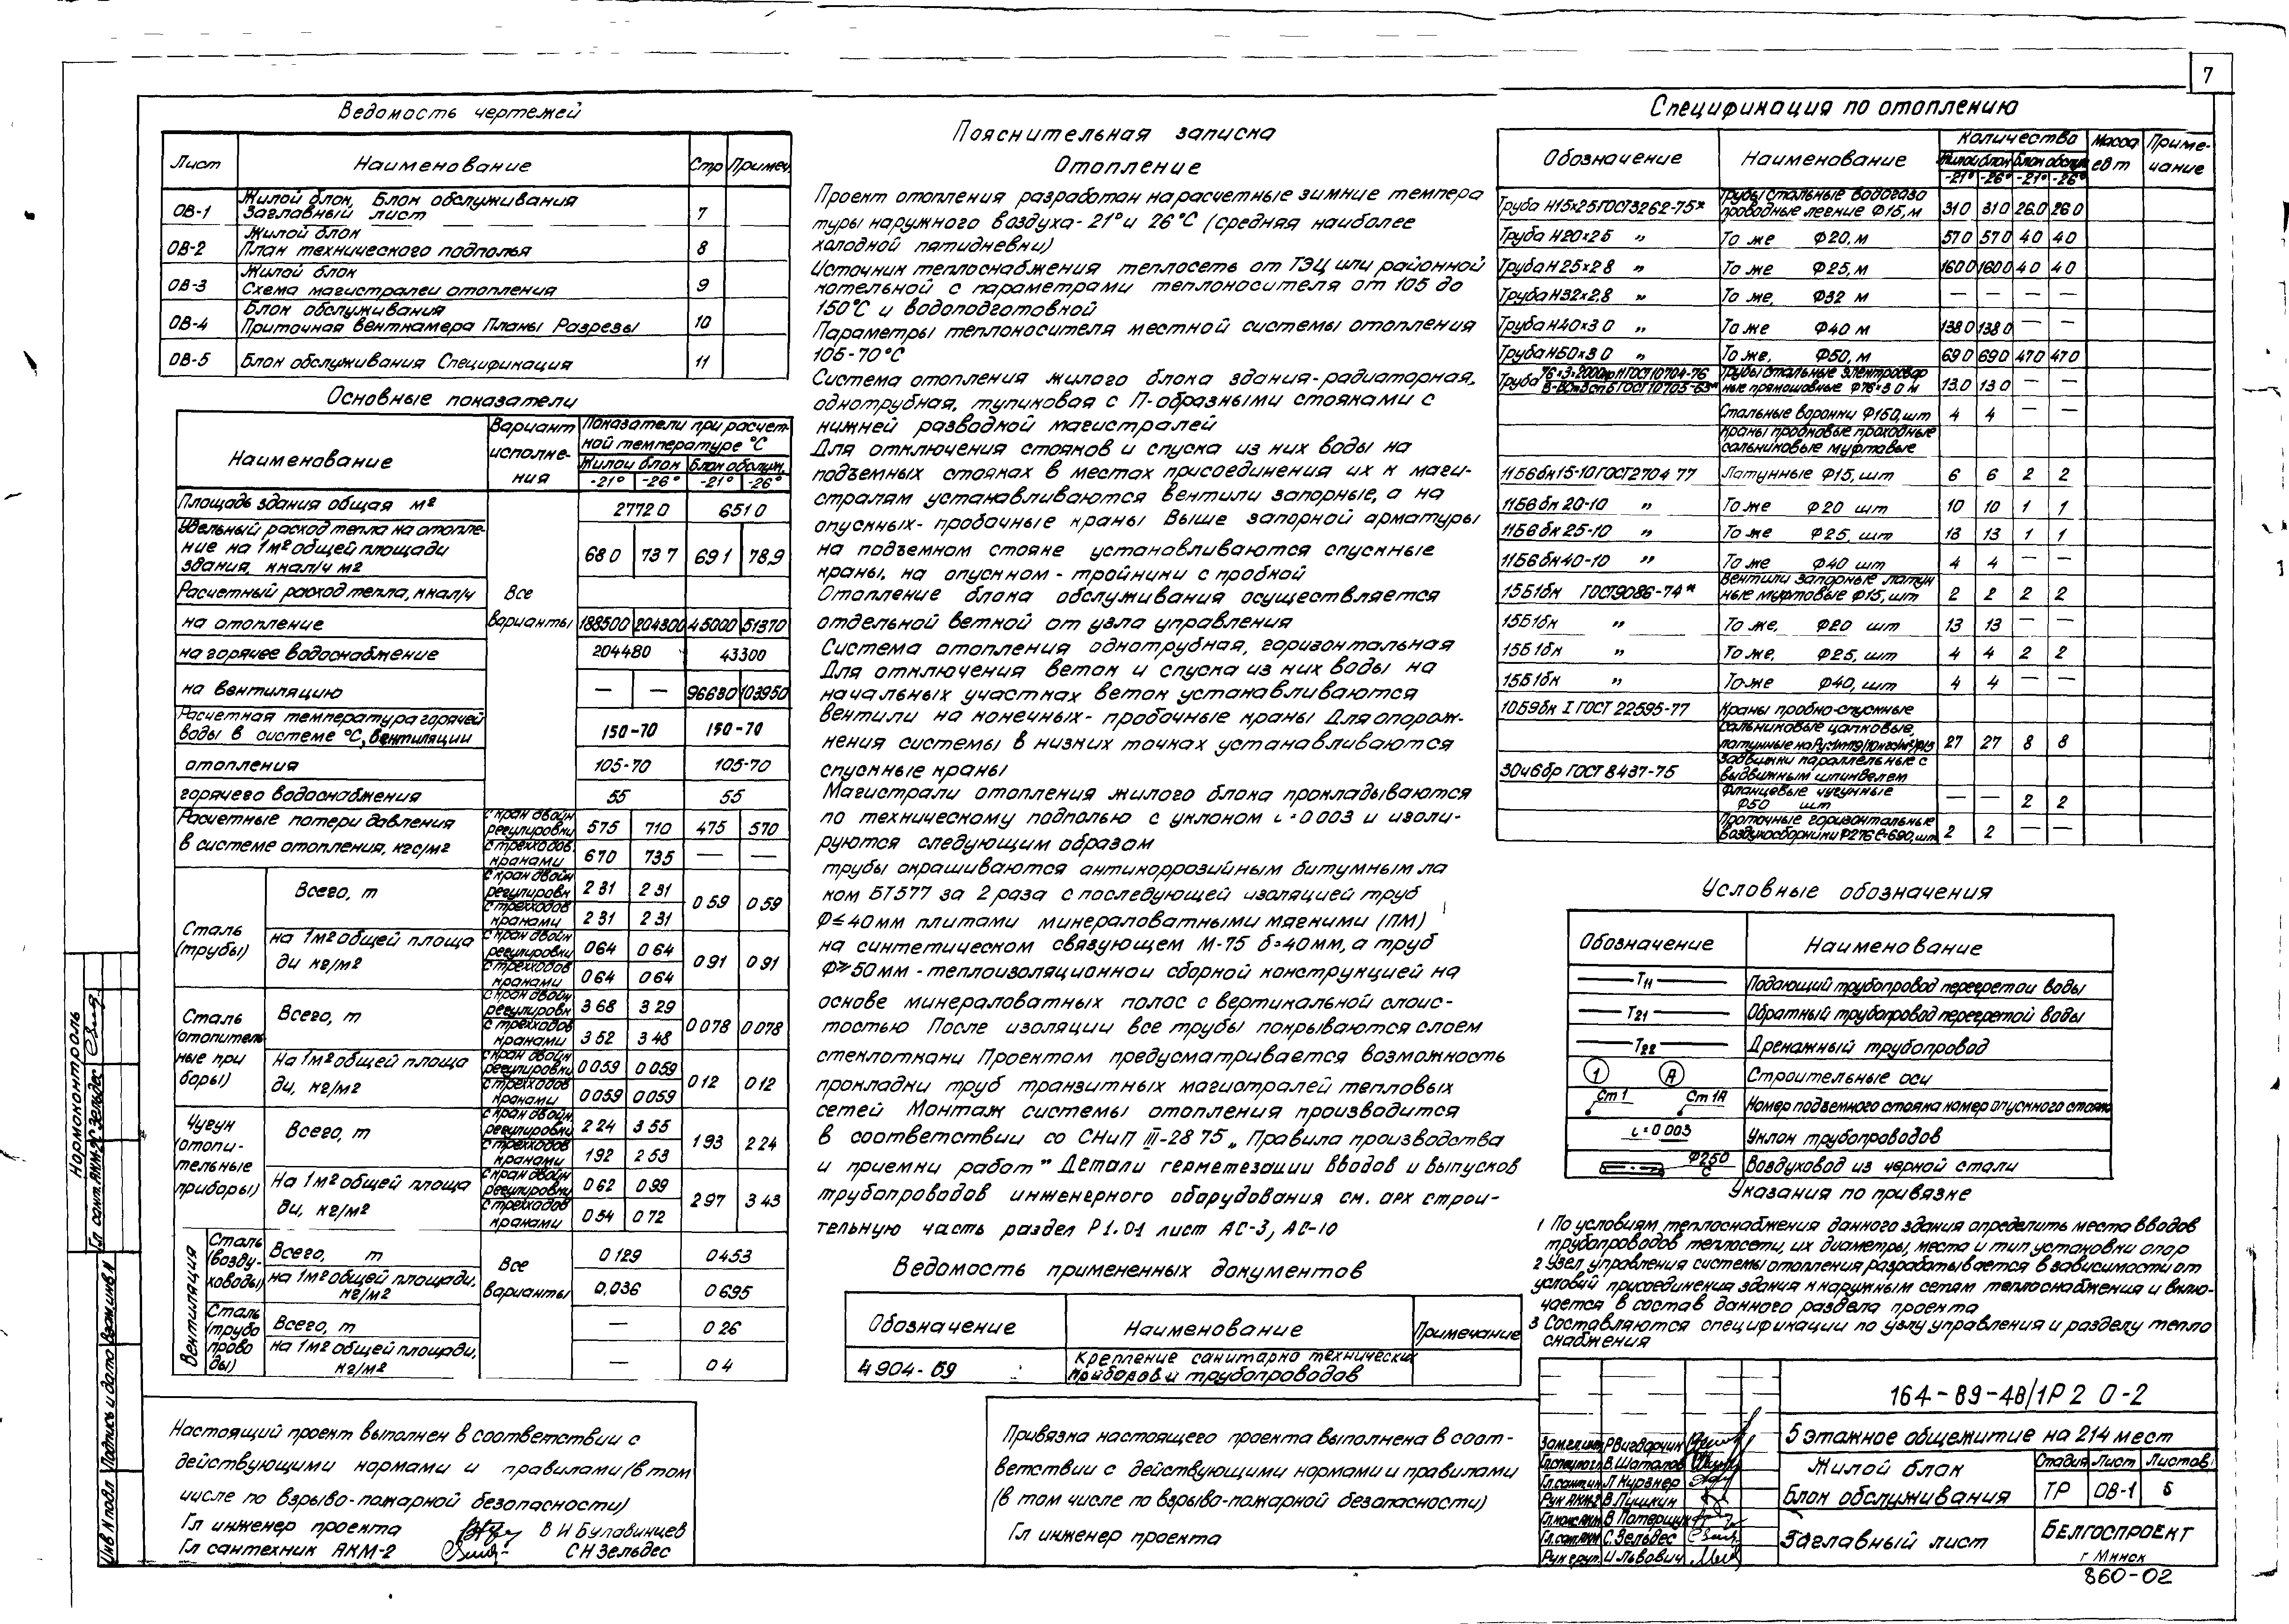 7
Ведомость чертежей
Лист Наименование Стр Примеч.
ОВ-1 Жилой блок, Блок обслуживания
Заглавный лист 7
ОВ-2 Жилой блок
План технического подполья 8
ОВ-3 Жилой блок
Схема магистралей отопления 9
ОВ-4 Блок обслуживания
Приточная венткамера Планы Разрезы 10
ОВ-5 Блок обслуживания Спецификация 11
Основные показатели
Наименование Вариант исполнения Показатели при расчетной температуре °С
Жилой блок Блок обслуж.
-21° -26° -21° -26°
Площадь здания общая м² 2772 0 651 0
Удельный расход тепла на отопле-
ние на 1м² общей площади
здания, ккал/ч м² 68 0 73 7 69 1 78,9
Расчетный расход тепла, ккал/ч Все
на отопление варианты 188500 204300 45000 51370
на горячее водоснабжение 204480 43300
на вентиляцию — — 96680 103950
Расчетная температура горячей
воды в системе °С, вентиляции 150-70 150-70
отопления 105-70 105-70
горячего водоснабжения 55 55
Расчетные потери давления
в системе отопления, кгс/м²
с кран двойн регулировки 575 710 475 570
с трехходов. кранами 670 735 — —
Сталь (трубы) Всего, т
с кран двойн регулировк 2 31 2 31 0 59 0 59
с трехходов кранами 2 31 2 31
на 1м² общей площади кг/м²
с кран двойн регулировки 0 64 0 64 0 91 0 91
с трехходов кранами 0 64 0 64
Сталь (отопительные приборы) Всего, т
с кран двойн регулировк 3 68 3 29 0 078 0 078
с трехходов кранами 3 52 3 48
На 1м² общей площади, кг/м²
с кран двойн регулировки 0 059 0 059 0 12 0 12
с трехходов кранами 0 059 0 059
Чугун (отопительные приборы) Всего, т
с кран двойн регулировки 2 24 3 55 1 93 2 24
с трехходов кранами 1 92 2 53
На 1м² общей площади, кг/м²
с кран двойн регулировки 0 62 0 99 2 97 3 43
с трехходов кранами 0 54 0 72
Вентиляция
Сталь (воздуховоды) Всего, т Все варианты 0 129 0 453
на 1м² общей площади, кг/м² 0,036 0 695
Сталь (трубопроводы) Всего, т — 0 26
на 1м² общей площади, кг/м² — 0 4
Настоящий проект выполнен в соответствии с
действующими нормами и правилами (в том
числе по взрыво-пожарной безопасности)
Гл инженер проекта В И Булавинцев
Гл сантехник АКМ-2 С Н Зельдес
Пояснительная записка
Отопление
Проект отопления разработан на расчетные зимние темпера
туры наружного воздуха - 21° и 26°С (средняя наиболее
холодной пятидневки)
Источник теплоснабжения теплосеть от ТЭЦ или районной
котельной с параметрами теплоносителя от 105 до
150°С и водоподготовкой
Параметры теплоносителя местной системы отопления
105-70°С
Система отопления жилого блока здания-радиаторная,
однотрубная, тупиковая с П-образными стояками с
нижней разводкой магистралей
Для отключения стояков и спуска из них воды на
подъемных стояках в местах присоединения их к маги-
стралям устанавливаются вентили запорные, а на
опускных - пробочные краны Выше запорной арматуры
на подъемном стояке устанавливаются спускные
краны, на опускном - тройники с пробкой
Отопление блока обслуживания осуществляется
отдельной веткой от узла управления
Система отопления однотрубная, горизонтальная
Для отключения веток и спуска из них воды на
начальных участках веток устанавливаются
вентили на конечных - пробочные краны Для опорож-
нения системы в низких точках устанавливаются
спускные краны
Магистрали отопления жилого блока прокладываются
по техническому подполью с уклоном i=0 003 и изоли-
руются следующим образом
трубы окрашиваются антикоррозийным битумным ла
ком БТ577 за 2 раза с последующей изоляцией труб
Ф≤40мм плитами минераловатными мягкими (ПМ)
на синтетическом связующем М-75 δ=40мм, а труб
Ф≥50мм - теплоизоляционной сборной конструкцией на
основе минераловатных полос с вертикальной слоис-
тостью После изоляции все трубы покрываются слоем
стеклоткани Проектом предусматривается возможность
прокладки труб транзитных магистралей тепловых
сетей Монтаж системы отопления производится
в соответствии со СНиП III-28 75 „Правила производства
и приемки работ" Детали герметезации вводов и выпусков
трубопроводов инженерного оборудования см. арх строи-
тельную часть раздел Р1.01 лист АС-3, АС-10
Ведомость примененных документов
Обозначение Наименование Примечание
4 904-69 Крепление санитарно технических
приборов и трубопроводов
Привязка настоящего проекта выполнена в соот-
ветствии с действующими нормами и правилами
(в том числе по взрыво-пожарной безопасности)
Гл инженер проекта
Спецификация по отоплению
Обозначение Наименование Количество Масса ед т Примечание
Жилой блок Блок обслуж
-21° -26° -21° -26°
Труба Н15х25 ГОСТ3262-75* Трубы стальные водогазо
проводные легкие Ф15, м 31 0 31 0 26.0 26 0
Труба Н20х25 „ То же Ф20, м 57 0 57 0 4 0 4 0
Труба Н25х28 „ То же Ф25, м 160 0 160 0 4 0 4 0
Труба Н32х2.8 „ То же, Ф32 м — — — —
Труба Н40х3 0 „ То же Ф40 м 138 0 138 0 — —
Труба Н50х3 0 „ То же, Ф50, м 69 0 69 0 47 0 47 0
Труба Трубы стальные электросвар
ные прямошовные Ф76х3 0 м 13.0 13 0 — —
Стальные воронки Ф150, шт 4 4 — —
Краны пробковые проходные
сальниковые муфтовые
11Б6бк15-10 ГОСТ2704 77 Латунные Ф15, шт 6 6 2 2
11Б6бк 20-10 „ То же Ф20 шт 10 10 1 1
11Б6бк 25-10 „ То же Ф25, шт 13 13 1 1
11Б6бк 40-10 „ То же Ф40 шт 4 4 — —
15Б1бк ГОСТ9086-74* Вентили запорные латун
ные муфтовые Ф15, шт 2 2 2 2
15Б1бк „ То же, Ф20 шт 13 13 — —
15Б1бк „ То же, Ф25, шт 4 4 2 2
15Б1бк „ То же Ф40, шт 4 4 — —
10Б9бк I ГОСТ 22595-77 Краны пробно-спускные
сальниковые цапковые,
латунные 27 27 8 8
30ч6бр ГОСТ 8437-75 Задвижки параллельные с
выдвижным шпинделем
фланцевые чугунные
Ф50 шт — — 2 2
Проточные горизонтальные
воздухосборники Ф276 ℓ=690, шт 2 2 — —
Условные обозначения
Обозначение Наименование
Т11 Подающий трубопровод перегретой воды
Т21 Обратный трубопровод перегретой воды
Т22 Дренажный трубопровод
1 А Строительные оси
Ст 1 Ст 1А Номер подъемного стояка номер опускного стояка
i=0 003 Уклон трубопроводов
Ф250 С Воздуховод из черной стали
Указания по привязке
1 По условиям теплоснабжения данного здания определить места вводов
трубопроводов теплосети, их диаметры, места и тип установки опор
2 Узел управления системы отопления разрабатывается в зависимости от
условий присоединения здания к наружным сетям теплоснабжения и вклю-
чается в состав данного раздела проекта
3 Составляются спецификации по узлу управления и разделу тепло
снабжения
164-89-48/1Р 2 0-2
5 этажное общежитие на 214 мест
Жилой блок
Блок обслуживания
Стадия Лист Листов
ТР ОВ-1 5
Заглавный лист
БЕЛГОСПРОЕКТ
г Минск
Р Вигдорчик
В. Шаталов
Гл.сантин Л Курзнер
Рук АКМ-2 В. Пушкин
Гл.конс.АКМ В Потерщук
Гл.сан.АКМ С. Зельдес
Рук груп. И Львович
860-02
Нормоконтроль
Гл сант. АКМ-2 С Зельдес
Инв N подл Подпись и дата Взам.инв N